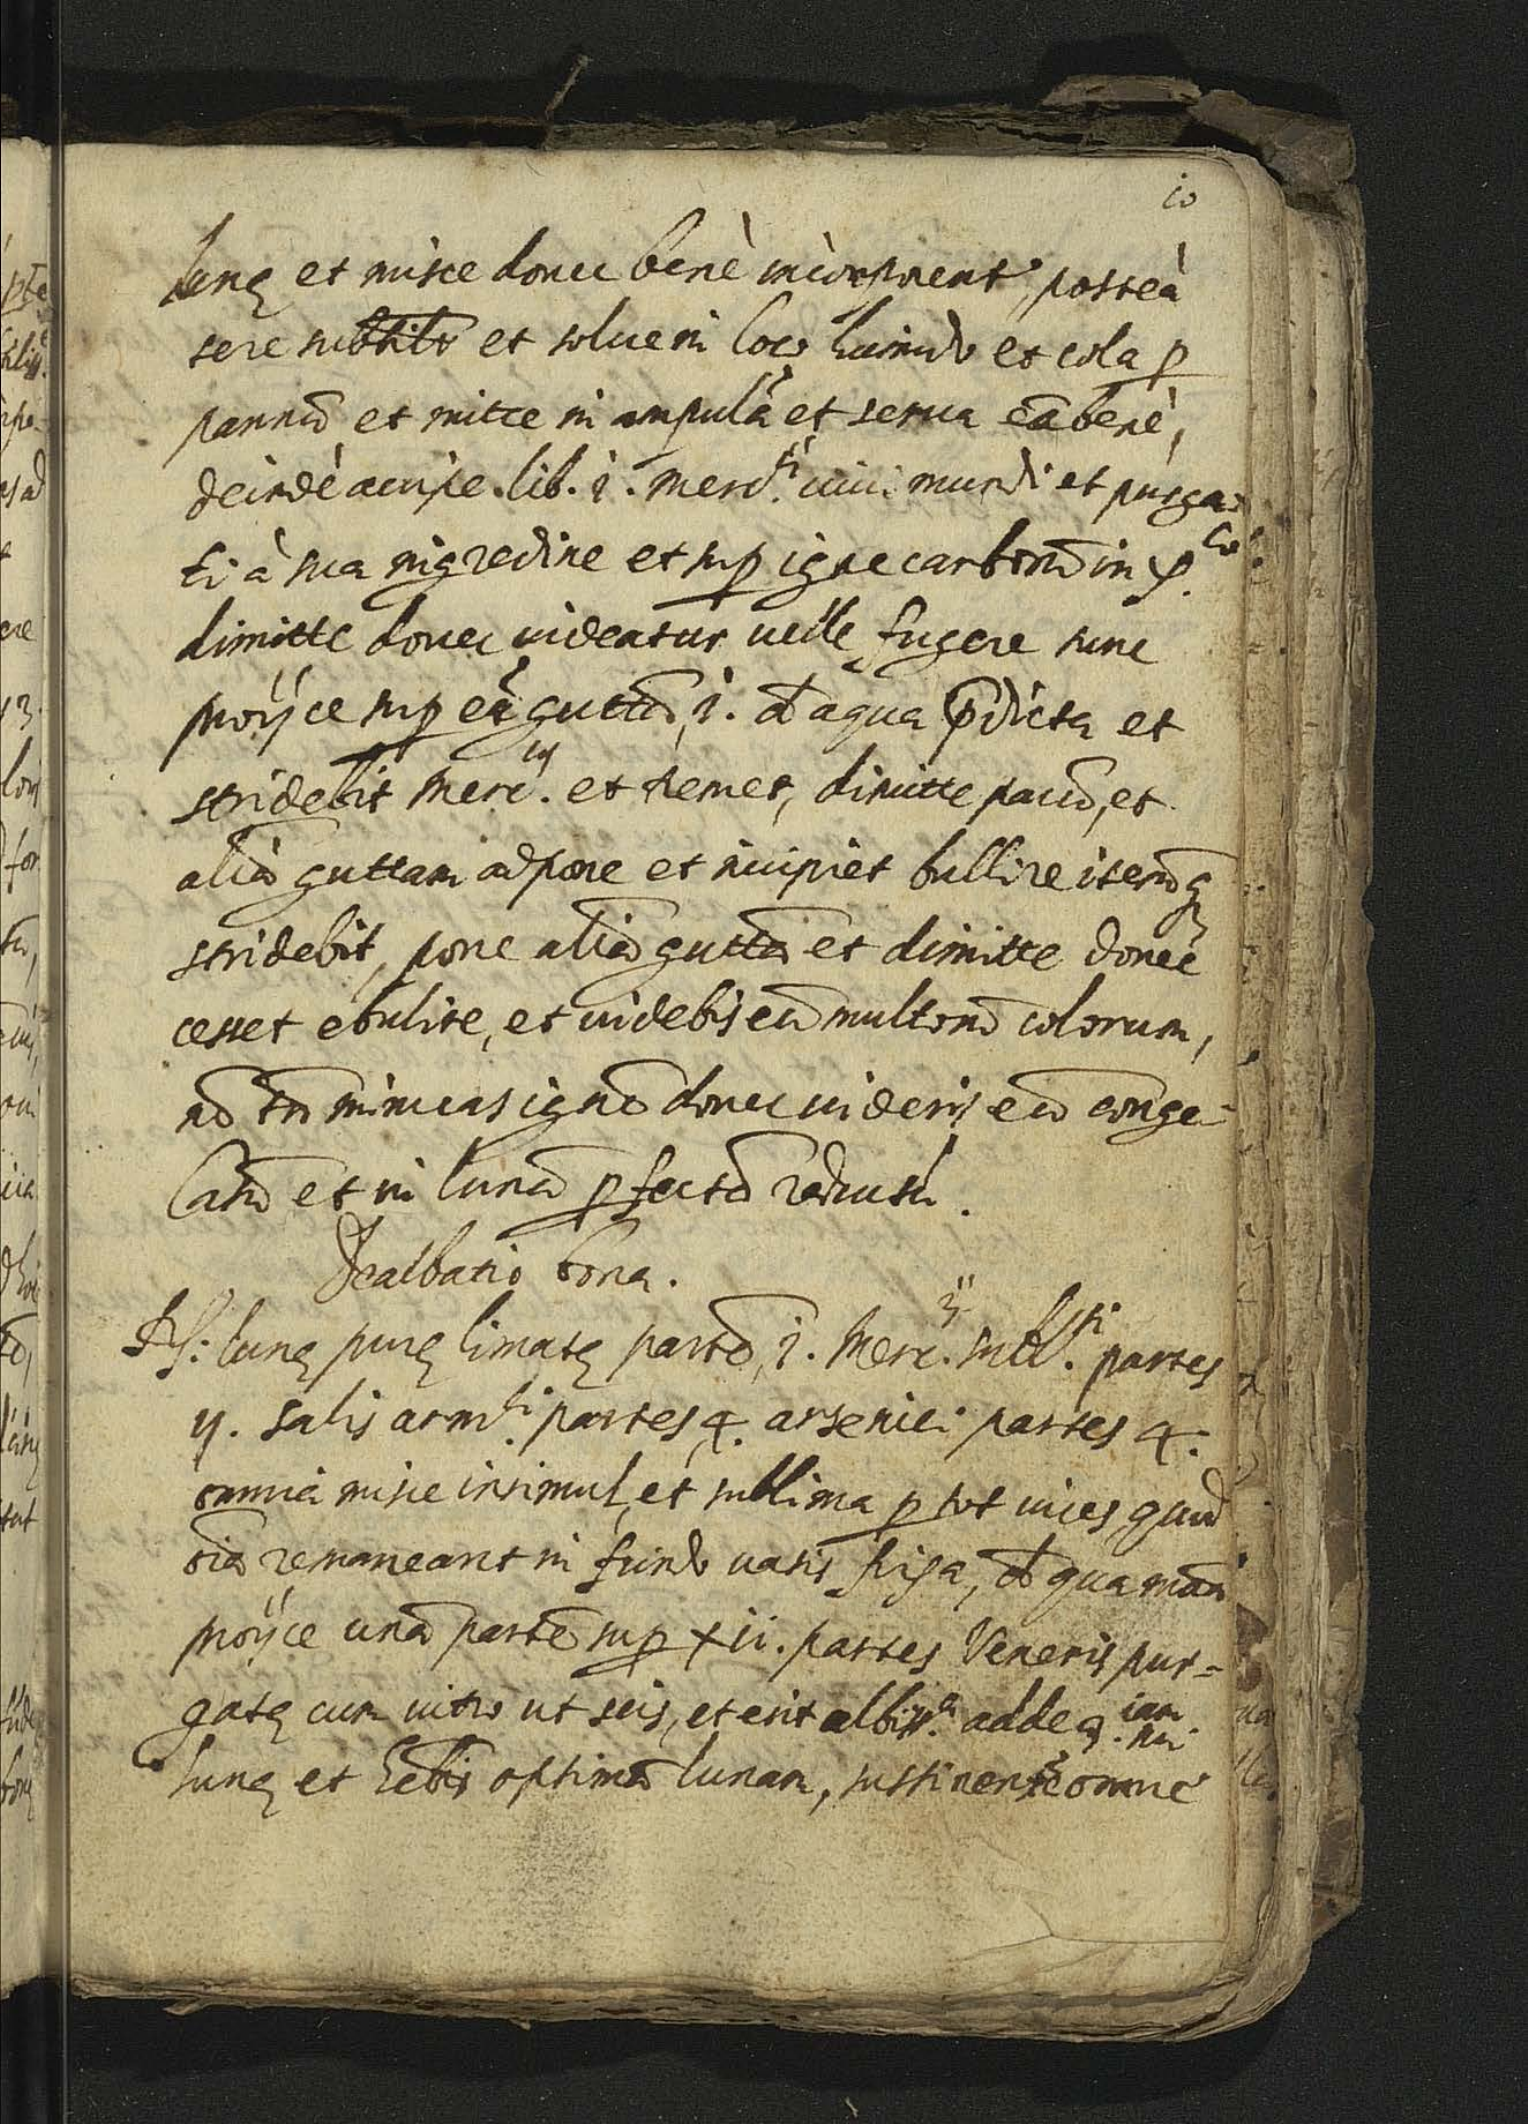 10
lunę et misce donec benè incorporent, posteà
tere subtilr et solue in loco humido et cola p
pannũ et mitte in ampulã et serua eã benè,
deindè accipe. lib. i. merc.ij uiui mundi et purga=
ti à sua nigredine et sup igne carbonũ in
dimitte donec uideatur uelle fugere tunc
proijce sup eũ guttã, i. de aqua p̃dicta et
stridebit merc.us et tremet, dimitte paucũ, et
aliã guttam adpone et incipiet bullire iterũq
stridebit, pone aliã guttã et dimitte donec
cesset ebulire, et uidebis eũ multorũ colorum,
nõ tñ minueas ignẽ donec uideris eũ conge=
latũ et in lunã pfectã reductũ.
Dealbatio bona.
Rx: lunę purę limatę partẽ, i. Merc.ij subl.ti partes
ij. salis arm.ci partes, 4. arsenici partes 4.
omnia misce insimul, et sublima p tot uices, quod
oĩa remaneant in fundo uasis fixa, de qua mã
proijce unã partẽ sup xii. partes Veneris pur=
gatę cum uitro ut scis, et erit albiss.a adde
lunę et hẽbis optimã lunam, sustinentẽ omne